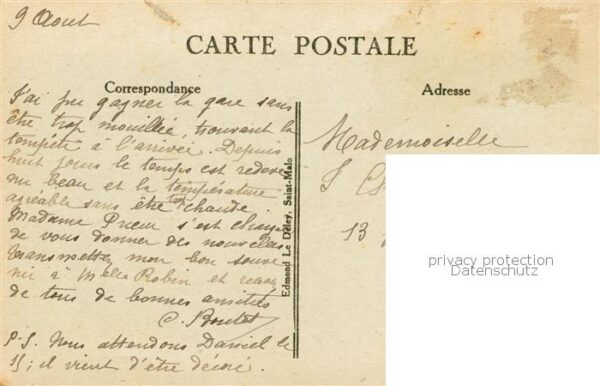 9 Aout
CARTE POSTALE
Correspondance
J'ai pu gagner la gare sans
être trop mouillée, trouvant la
tempête à l'arrivée. Depuis
huit jours le temps est redeve
nu beau et la température
agréable sans être trop chaude.
Madame Prieur s'est chargée
de vous donner des nouvelles
transmettez mon bon souve
nir à Melle Robin et recevez
de tous de bonnes amitiés
C. Boutet
P.S. Nous attendons Daniel le
15; il vient d'être décoré.
Edmond Le Deley, Saint-Malo
Adresse
Mademoiselle
13
privacy protection
Datenschutz